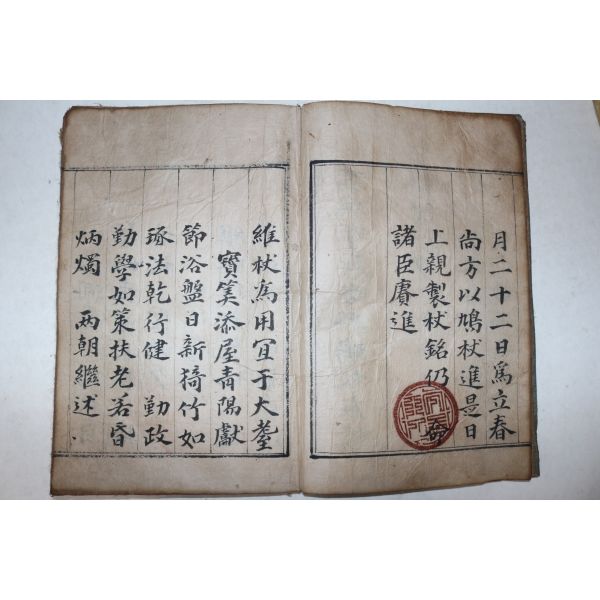 月二十二日爲立春
尚方以鳩杖進是日
上親製杖銘仍命
諸臣賡進
維杖為用宜于大耋
寶筭添屋青陽獻
節浴盤日新猗竹如
琢法乾行健 勤政
勤學如策扶老若昏
炳燭 兩朝繼述